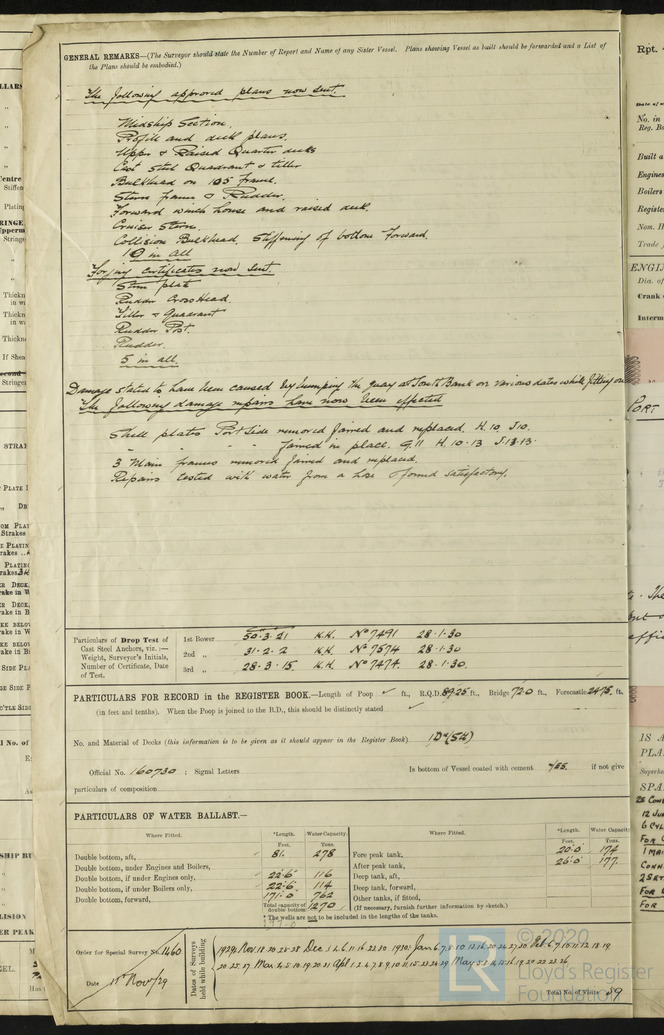 GENERAL REMARKS—(The Surveyor should state the Number of Report and Name of any Sister Vessel. Plans showing Vessel as built should be forwarded and a List of
the Plans should be embodied.)
The following approved plans now sent.
Midship Section.
Profile and deck plans.
Upper & Raised Quarter decks
Cast Steel Quadrant & tiller
Bulkhead on 105 frame.
Stern frame & Rudder.
Forward winch house and raised deck.
Cruiser Stern.
Collision Bulkhead, Stiffening of bottom Forward.
10 in all
Forging certificates now sent.
Stem plate
Rudder Cross Head.
Tiller & Quadrant
Rudder Post.
Rudder.
5 in all.
Damage stated to have been caused by bumping the quay at South Bank on various dates while fitting out
The following damage repairs have now been effected
Shell plates Port Side removed faired and replaced H.10, J.10.
" " " " faired in place. G.11 H.10-13 J.12-13.
3 Main frames removed faired and replaced.
Repairs tested with water from a hose & found satisfactory.
Particulars of Drop Test of
Cast Steel Anchors, viz. :—
Weight, Surveyor's Initials,
Number of Certificate, Date
of Test.
1st Bower 30·3·21 K.H. No 7491 28·1·30
2nd „ 31·2·2 K.H. No 7574 28·1·30
3rd „ 28·3·15 K.H. No 7474 28·1·30
PARTICULARS FOR RECORD in the REGISTER BOOK.—Length of Poop ✓ ft., R.Q.D. 89.25 ft., Bridge 72.0 ft., Forecastle 24.75 ft.
(in feet and tenths). When the Poop is joined to the B.D., this should be distinctly stated ✓
No. and Material of Decks (this information is to be given as it should appear in the Register Book) 1 Dk (Stl)
Official No. 160730 ; Signal Letters Is bottom of Vessel coated with cement yes. if not give
particulars of composition
PARTICULARS OF WATER BALLAST.—
Where Fitted. *Length. Water Capacity. Where Fitted. *Length. Water Capacity
Feet. Tons. Feet. Tons.
Double bottom, aft, 81. 278 Fore peak tank, 20.0 174
Double bottom, under Engines and Boilers, After peak tank, 26.0 177.
Double bottom, if under Engines only, 22.6 116 Deep tank, aft,
Double bottom, if under Boilers only, 22.6 114 Deep tank, forward,
Double bottom, forward, 171.0 762 Other tanks, if fitted,
Total capacity of double bottom 1270 (If necessary, furnish further information by sketch.)
* The wells are not to be included in the lengths of the tanks.
Order for Special Survey No. 1460
Date 1st Nov/29
Dates of Surveys
held while building
Total No. of Visits 59
© 2020
Lloyd's Register
Foundation
LR